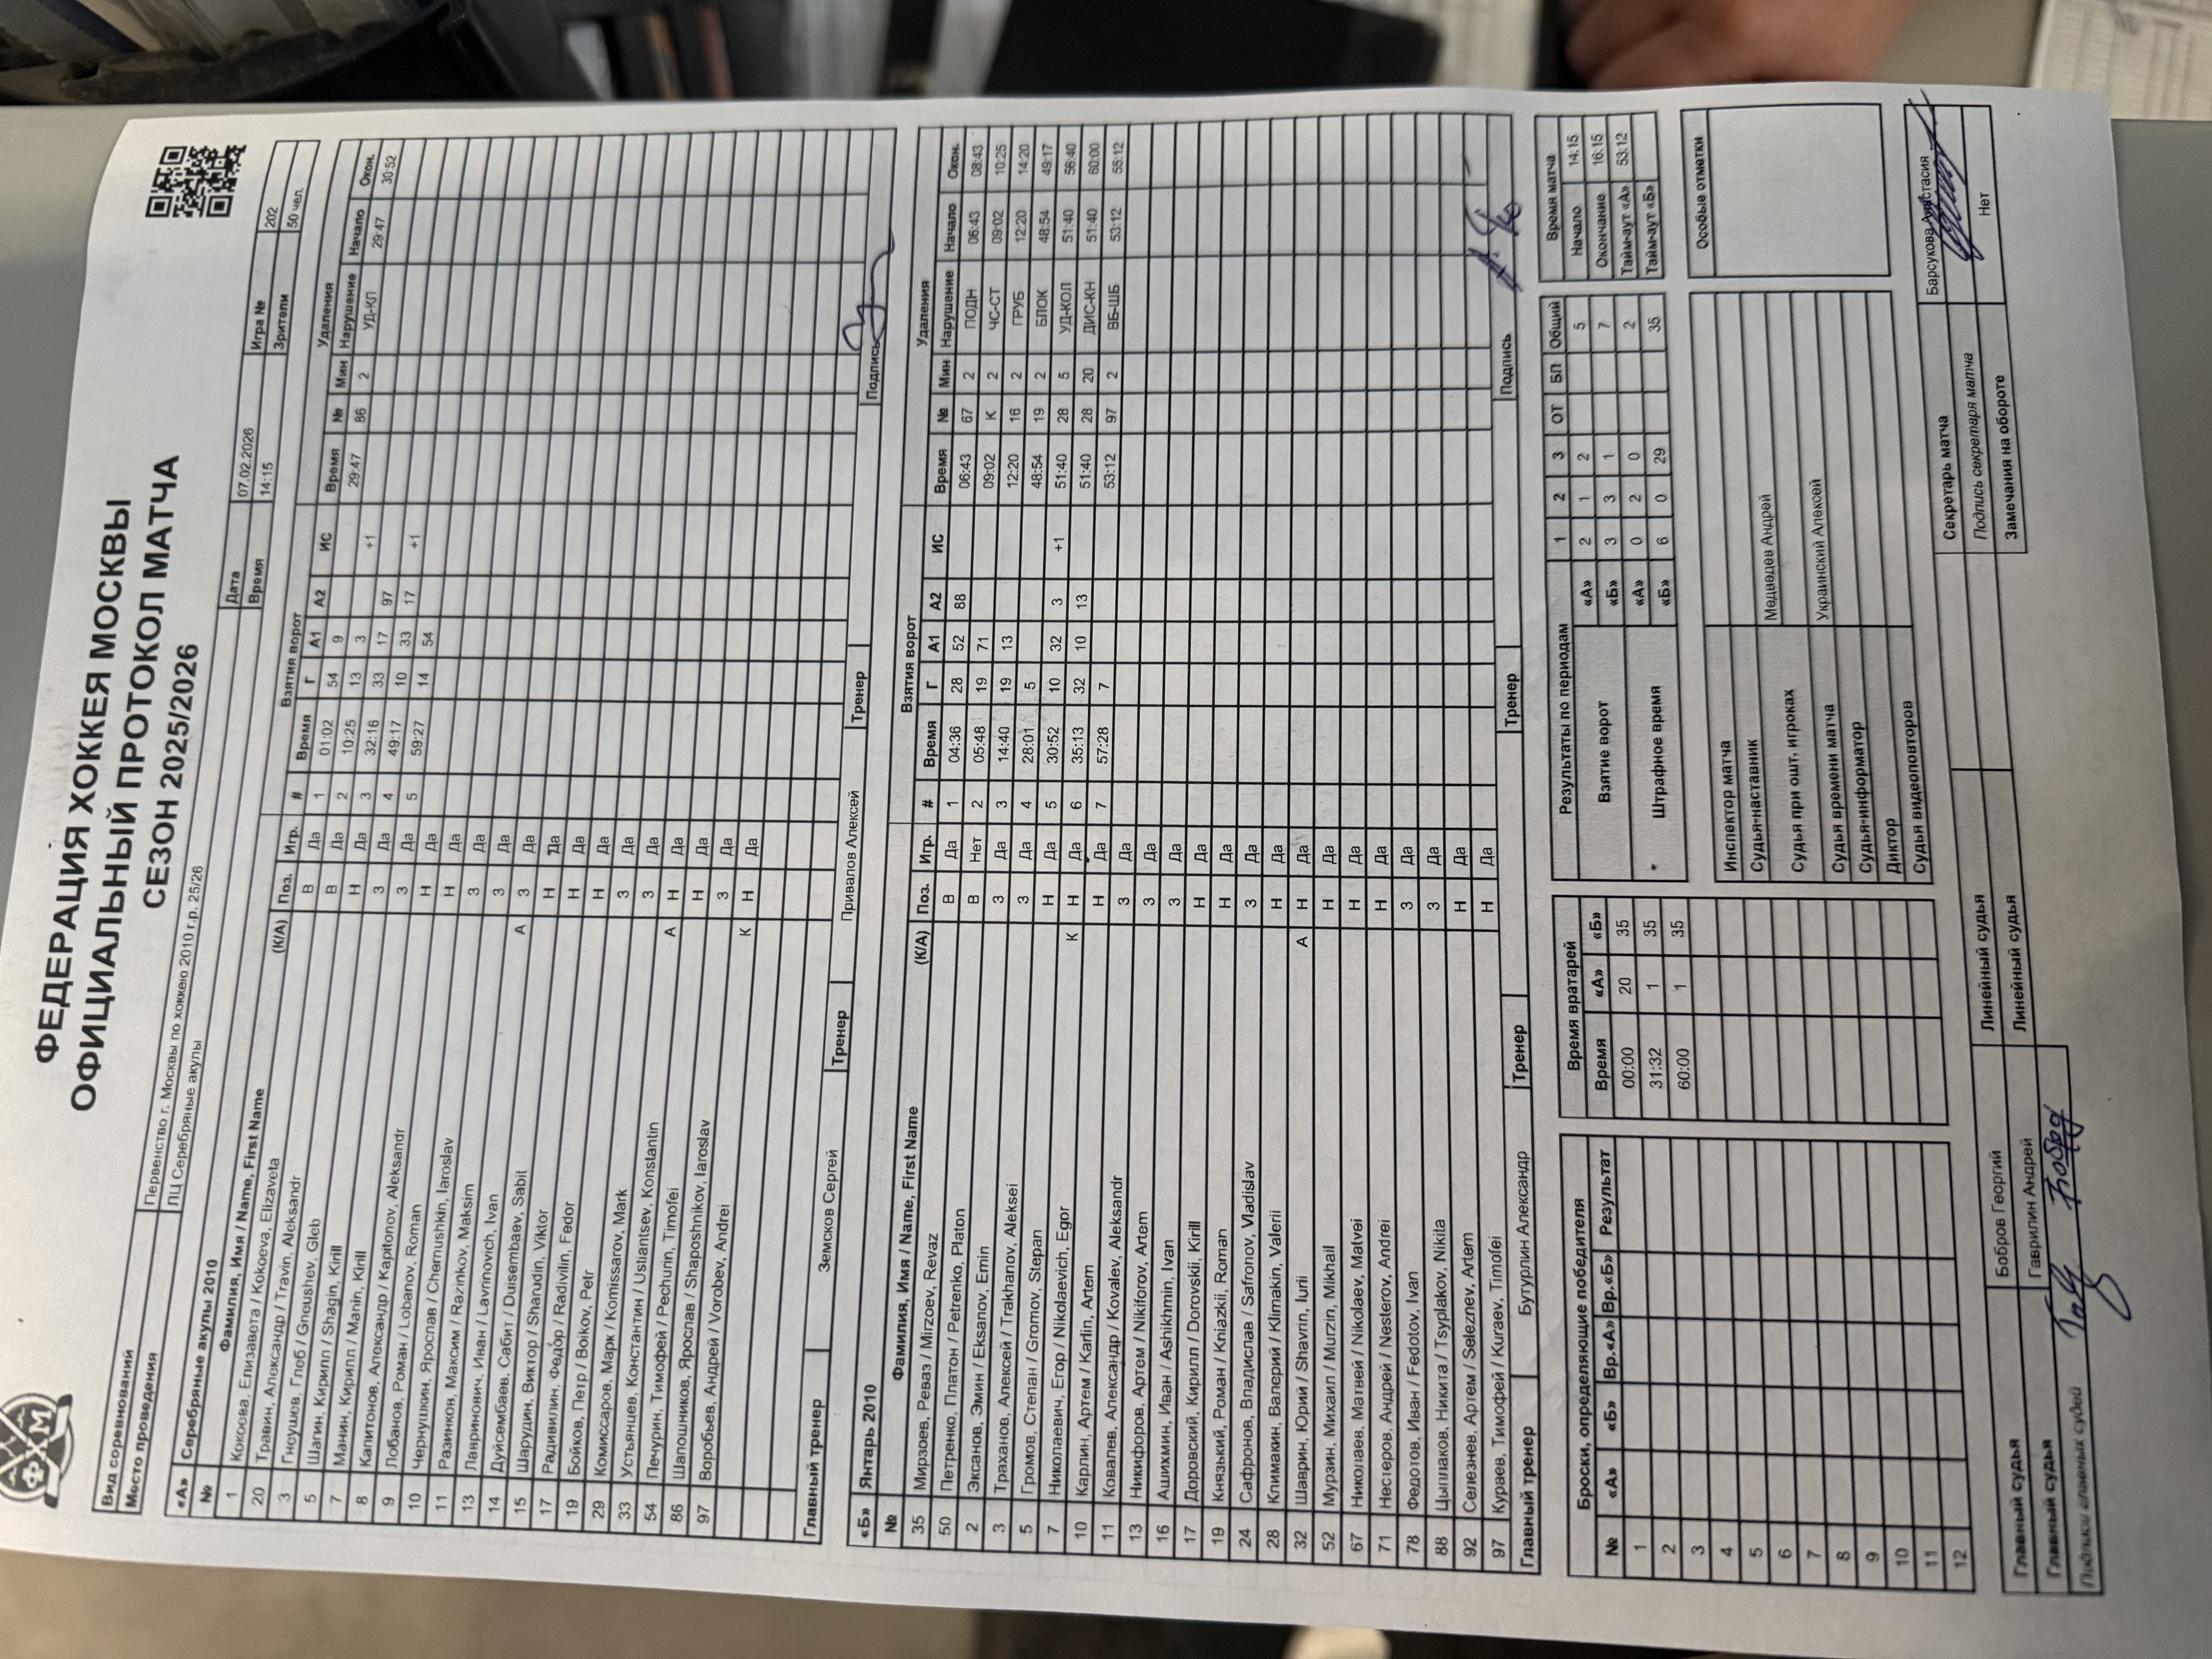 ФЕДЕРАЦИЯ ХОККЕЯ МОСКВЫ
ОФИЦИАЛЬНЫЙ ПРОТОКОЛ МАТЧА
СЕЗОН 2025/2026
Вид соревнований Первенство г. Москвы по хоккею 2010 г.р. 25/26 Дата 07.02.2026 Игра № 202
Место проведения ЛЦ Серебряные акулы Время 14:15 Зрители 50 чел.
«А» Серебряные акулы 2010 Взятия ворот Удаления
№ Фамилия, Имя / Name, First Name (К/А) Поз. Игр. # Время Г А1 А2 ИС Время № Мин Нарушение Начало Окон.
1 Кокоева, Елизавета / Kokoeva, Elizaveta В Да 1 01:02 54 9 29:47 86 2 УД-КЛ 29:47 30:52
20 Травин, Александр / Travin, Aleksandr В Да 2 10:25 13 3 +1
3 Гнсушев, Глеб / Gnoushev, Gleb Н Да 3 32:16 33 17 97
5 Шагин, Кирилл / Shagin, Kirill З Да 4 49:17 10 33 17 +1
7 Манин, Кирилл / Manin, Kirill З Да 5 59:27 14 54
8 Капитонов, Александр / Kapitonov, Aleksandr Н Да
9 Лобанов, Роман / Lobanov, Roman Н Да
10 Чернушкин, Ярослав / Chernushkin, Iaroslav З Да
11 Разинков, Максим / Razinkov, Maksim З Да
13 Лавринович, Иван / Lavrinovich, Ivan А З Да
14 Дуйсембаев, Сабит / Duisembaev, Sabit Н Да
15 Шарудин, Виктор / Sharudin, Viktor Н Да
17 Радивилин, Федор / Radivilin, Fedor Н Да
19 Бойков, Петр / Boikov, Petr З Да
29 Комиссаров, Марк / Komissarov, Mark З Да
33 Устьянцев, Константин / Ustiantsev, Konstantin А Н Да
54 Печурин, Тимофей / Pechurin, Timofei Н Да
86 Шапошников, Ярослав / Shaposhnikov, Iaroslav З Да
97 Воробьев, Андрей / Vorobev, Andrei К Н Да
Главный тренер Земсков Сергей Тренер Привалов Алексей Тренер Подпись
«Б» Янтарь 2010 Взятия ворот Удаления
№ Фамилия, Имя / Name, First Name (К/А) Поз. Игр. # Время Г А1 А2 ИС Время № Мин Нарушение Начало Окон.
35 Мирзоев, Реваз / Mirzoev, Revaz В Да 1 04:36 28 52 88 06:43 67 2 ПОДН 06:43 08:43
50 Петренко, Платон / Petrenko, Platon В Нет 2 05:48 19 71 09:02 К 2 ЧС-СТ 09:02 10:25
2 Эксанов, Эмин / Eksanov, Emin З Да 3 14:40 19 13 12:20 16 2 ГРУБ 12:20 14:20
3 Траханов, Алексей / Trakhanov, Aleksei З Да 4 28:01 5 48:54 19 2 БЛОК 48:54 49:17
5 Громов, Степан / Gromov, Stepan Н Да 5 30:52 10 32 3 +1 51:40 28 5 УД-КОЛ 51:40 56:40
7 Николаевич, Егор / Nikolaevich, Egor К Н Да 6 35:13 32 10 13 51:40 28 20 ДИС-КН 51:40 60:00
10 Карлин, Артем / Karlin, Artem Н Да 7 57:28 7 53:12 97 2 ВБ-ШБ 53:12 55:12
11 Ковалев, Александр / Kovalev, Aleksandr З Да
13 Никифоров, Артем / Nikiforov, Artem З Да
16 Ашихмин, Иван / Ashikhmin, Ivan З Да
17 Доровский, Кирилл / Dorovskii, Kirill Н Да
19 Князький, Роман / Kniazkii, Roman Н Да
24 Сафронов, Владислав / Safronov, Vladislav З Да
28 Климакин, Валерий / Klimakin, Valerii Н Да
32 Шаврин, Юрий / Shavrin, Iurii А Н Да
52 Мурзин, Михаил / Murzin, Mikhail Н Да
67 Николаев, Матвей / Nikolaev, Matvei Н Да
71 Нестеров, Андрей / Nesterov, Andrei Н Да
78 Федотов, Иван / Fedotov, Ivan З Да
88 Цыплаков, Никита / Tsyplakov, Nikita З Да
92 Селезнев, Артем / Seleznev, Artem Н Да
97 Кураев, Тимофей / Kuraev, Timofei Н Да
Главный тренер Бутурлин Александр Тренер Тренер Подпись
Броски, определяющие победителя
№ «А» «Б» Вр.«А» Вр.«Б» Результат
1
2
3
4
5
6
7
8
9
10
11
12
Время вратарей
Время «А» «Б»
00:00 20 35
31:32 1 35
60:00 1 35
Результаты по периодам 1 2 3 ОТ БП Общий
Взятие ворот «А» 2 1 2 5
«Б» 3 3 1 7
* Штрафное время «А» 0 2 0 2
«Б» 6 0 29 35
Время матча
Начало 14:15
Окончание 16:15
Тайм-аут «А» 53:12
Тайм-аут «Б»
Инспектор матча
Судья-наставник
Судьи при ошт. игроках Медведев Андрей
Судья времени матча Украинский Алексей
Судья-информатор
Диктор
Судья видеоповторов
Особые отметки
Главный судья Бобров Георгий Линейный судья Секретарь матча Барсукова Анастасия
Главный судья Гаврилин Андрей Линейный судья Подпись секретаря матча
Подписи главных судей Замечания на обороте Нет